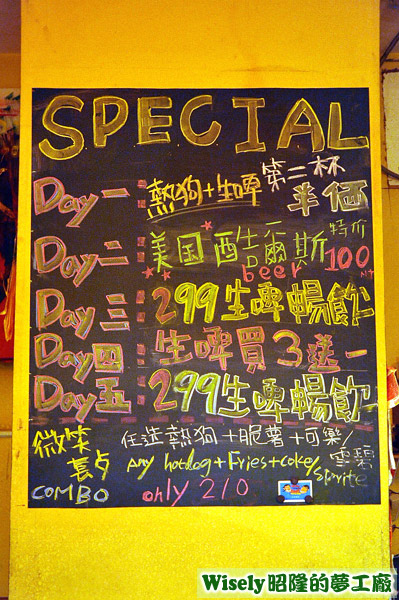 SPECIAL
Day 一 : 熱狗+生啤 第二杯半価
Day 二 : 美国酷士爾斯 beer 特价 100
Day 三 : 299生啤暢飲
Day 四 : 生啤買3送一
Day 五 : 299生啤暢飲
微笑套 任選熱狗+脆薯+可樂/雪碧
Any hotdog+Fries+coke/sprite
COMBO only 210
Wisely 昭隆的夢工廠